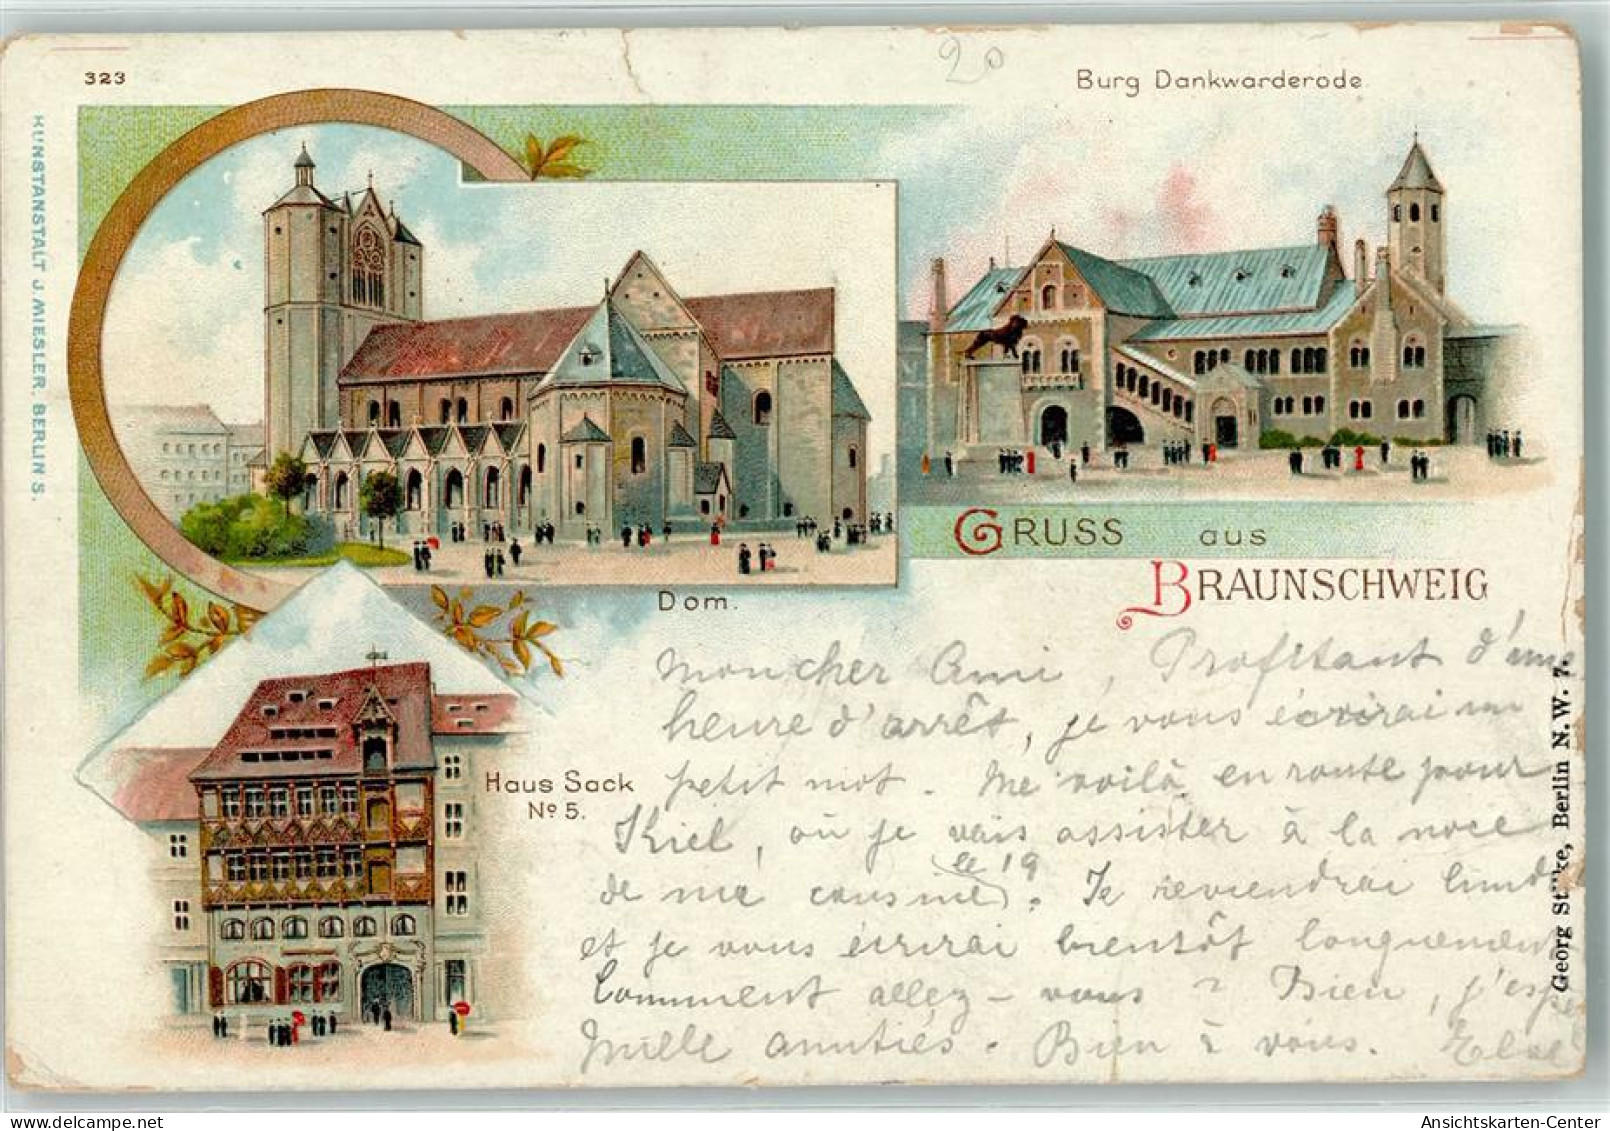 323
20
Burg Dankwarderode
KUNSTANSTALT J. MIESLER. BERLIN S.
GRUSS aus
BRAUNSCHWEIG
Dom.
Haus Sack
Nº 5.
Mon cher Ami, Profitant d'une
heure d'arrêt, je vous écrirai un
petit mot. Me voilà en route pour
Kiel, où je vais assister à la noce
de ma cousine le 19. Je reviendrai lundi
et je vous écrirai bientôt longuement
Comment allez-vous? Bien, j'esp
Mille amitiés. Bien à vous.
Georg St, Berlin N.W. 7.
Ansichtskarten-Center